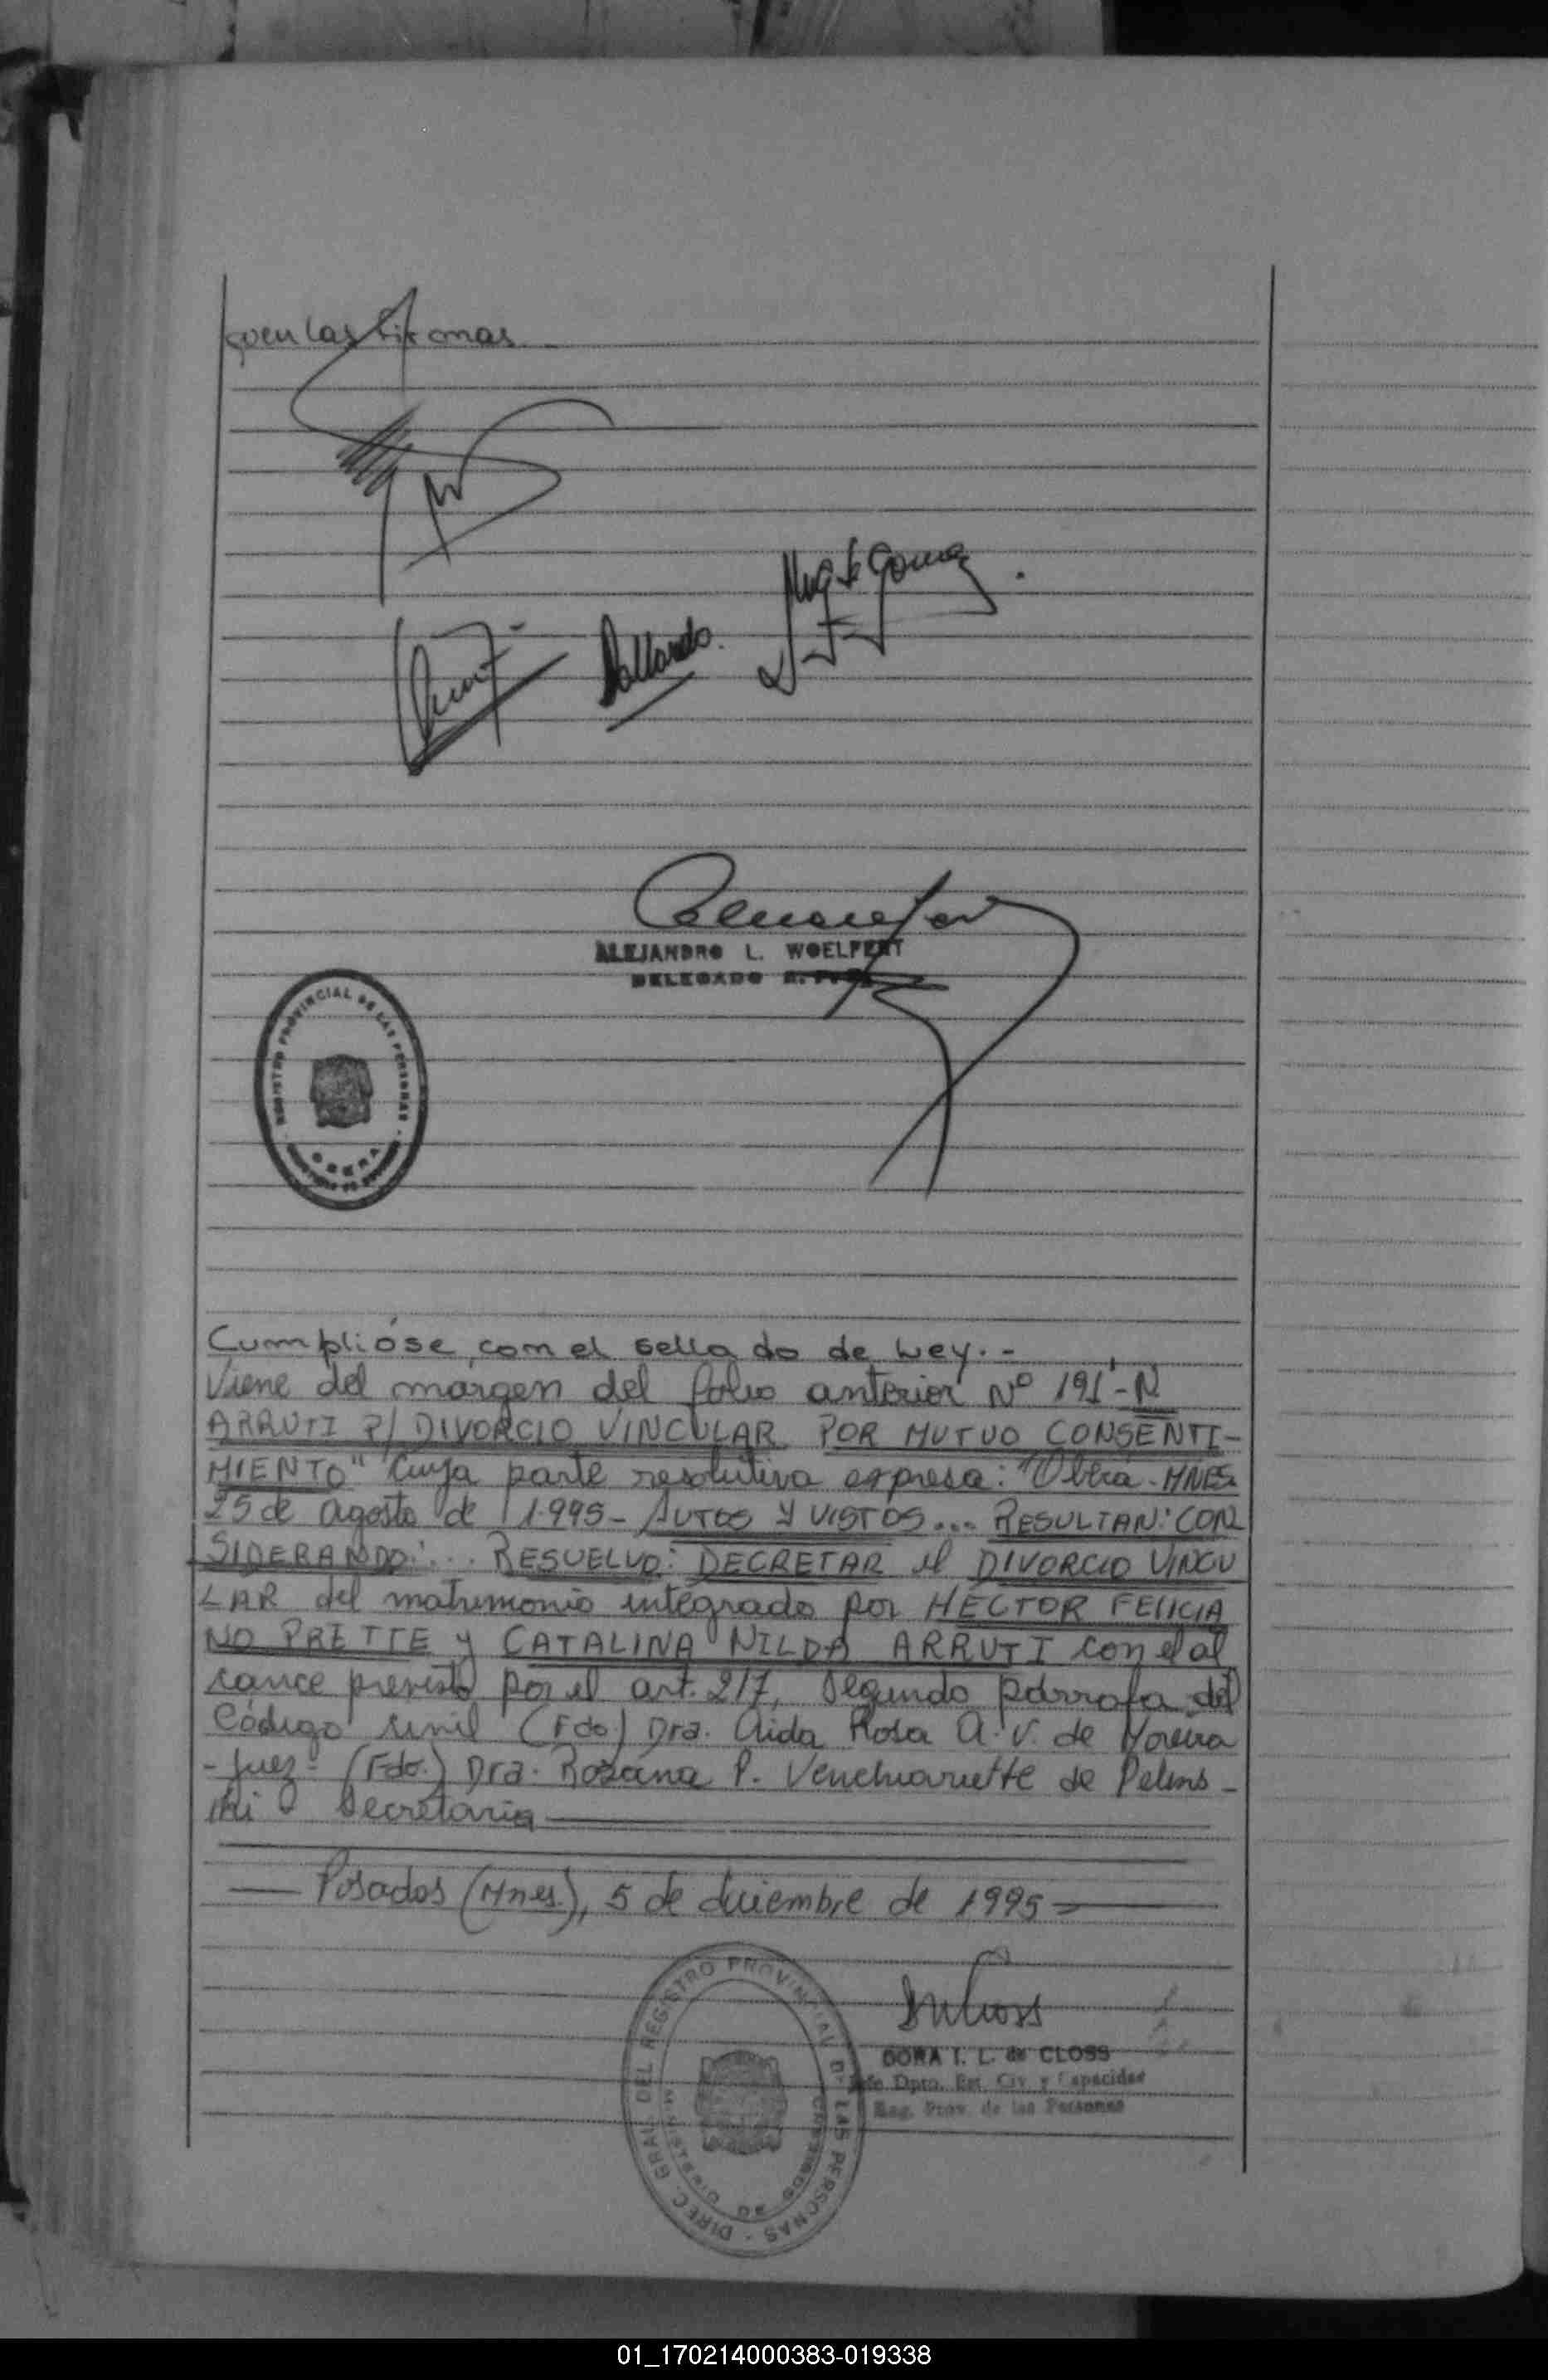 quen las firmas
Mug de Gomez
ALEJANDRO L. WOELFERT
DELEGADO R. P.
REGISTRO PROVINCIAL DE LAS PERSONAS
OBERA
Cumplióse con el sella do de Ley.-
Viene del margen del folio anterior Nº 191-N
ARRUTI P/ DIVORCIO VINCULAR POR MUTUO CONSENTI-
MIENTO" Cuya parte resolutiva expresa: "Obera-MNES
25 de agosto de 1.995- AUTOS Y VISTOS... RESULTAN: CON
SIDERANDO:... RESUELVO: DECRETAR el DIVORCIO VINCU
LAR del matrimonio integrado por HECTOR FELICIA
NO PRETTE y CATALINA NILDA ARRUTI con el al
cance previsto por el art. 217, segundo párrafo del
Código Civil (Fdo.) Dra. Aida Rosa A. V. de Moreira
-Juez- (Fdo.) Dra. Rosana P. Venchiarutte de Pelins-
ki Secretaria
Posadas (Mnes.), 5 de diciembre de 1995
DIREC. GRAL. DEL REGISTRO PROVINCIAL DE LAS PERSONAS
DORA I. L. de CLOSS
Jefe Dpto. Est. Civ. y Capacidad
Reg. Prov. de las Personas
01_170214000383-019338